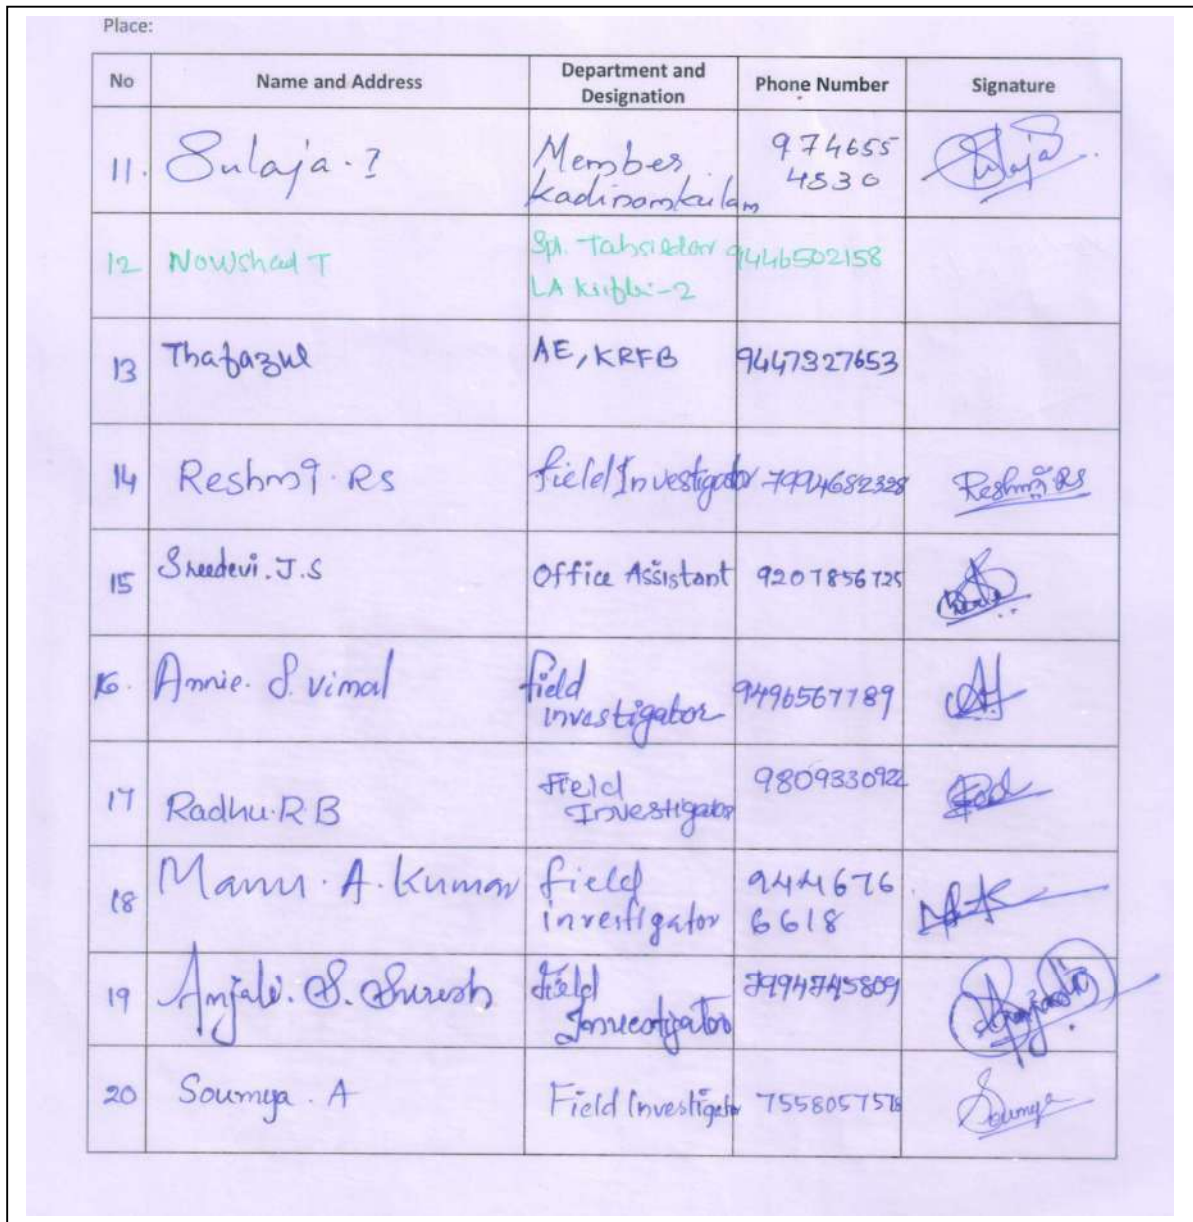 Place:
No Name and Address Department and Designation Phone Number Signature
11. Sulaja. Member Kadinamkulam 974655 4530 Sulaja
12 Nowshad T Spl. Tahsildar LA 9446502158
13 Thafazul AE, KRFB 9447327653
14 Reshmi RS Field Investigator 7994682328 Reshmi RS
15 Sreedevi. J.S Office Assistant 9207856725
16. Annie. S. Vimal Field investigator 9496567789
17 Radhu. R B Field Investigator 9809330922
18 Manu. A. Kumar field investigator 944676 6618
19 Anjali. S. Suresh Field Investigator 7994745809
20 Soumya. A Field Investigator Soumya